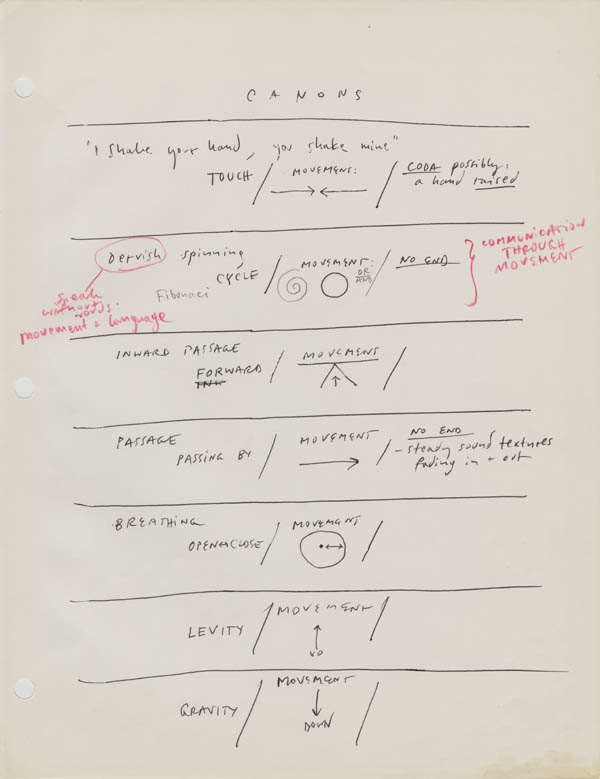 CANONS
"I shake your hand, you shake mine"
TOUCH / MOVEMENT: / CODA possibly:
a hand raised
Dervish spinning
CYCLE / MOVEMENT: / NO END
OR
Fibonaci
speak
without
words:
movement = language
COMMUNICATION
THROUGH
MOVEMENT
INWARD PASSAGE
FORWARD / MOVEMENT /
PASSAGE
PASSING BY / MOVEMENT / NO END
- steady sound textures
fading in + out
BREATHING
OPEN↔CLOSE / MOVEMENT /
LEVITY / MOVEMENT /
UP
GRAVITY / MOVEMENT /
DOWN